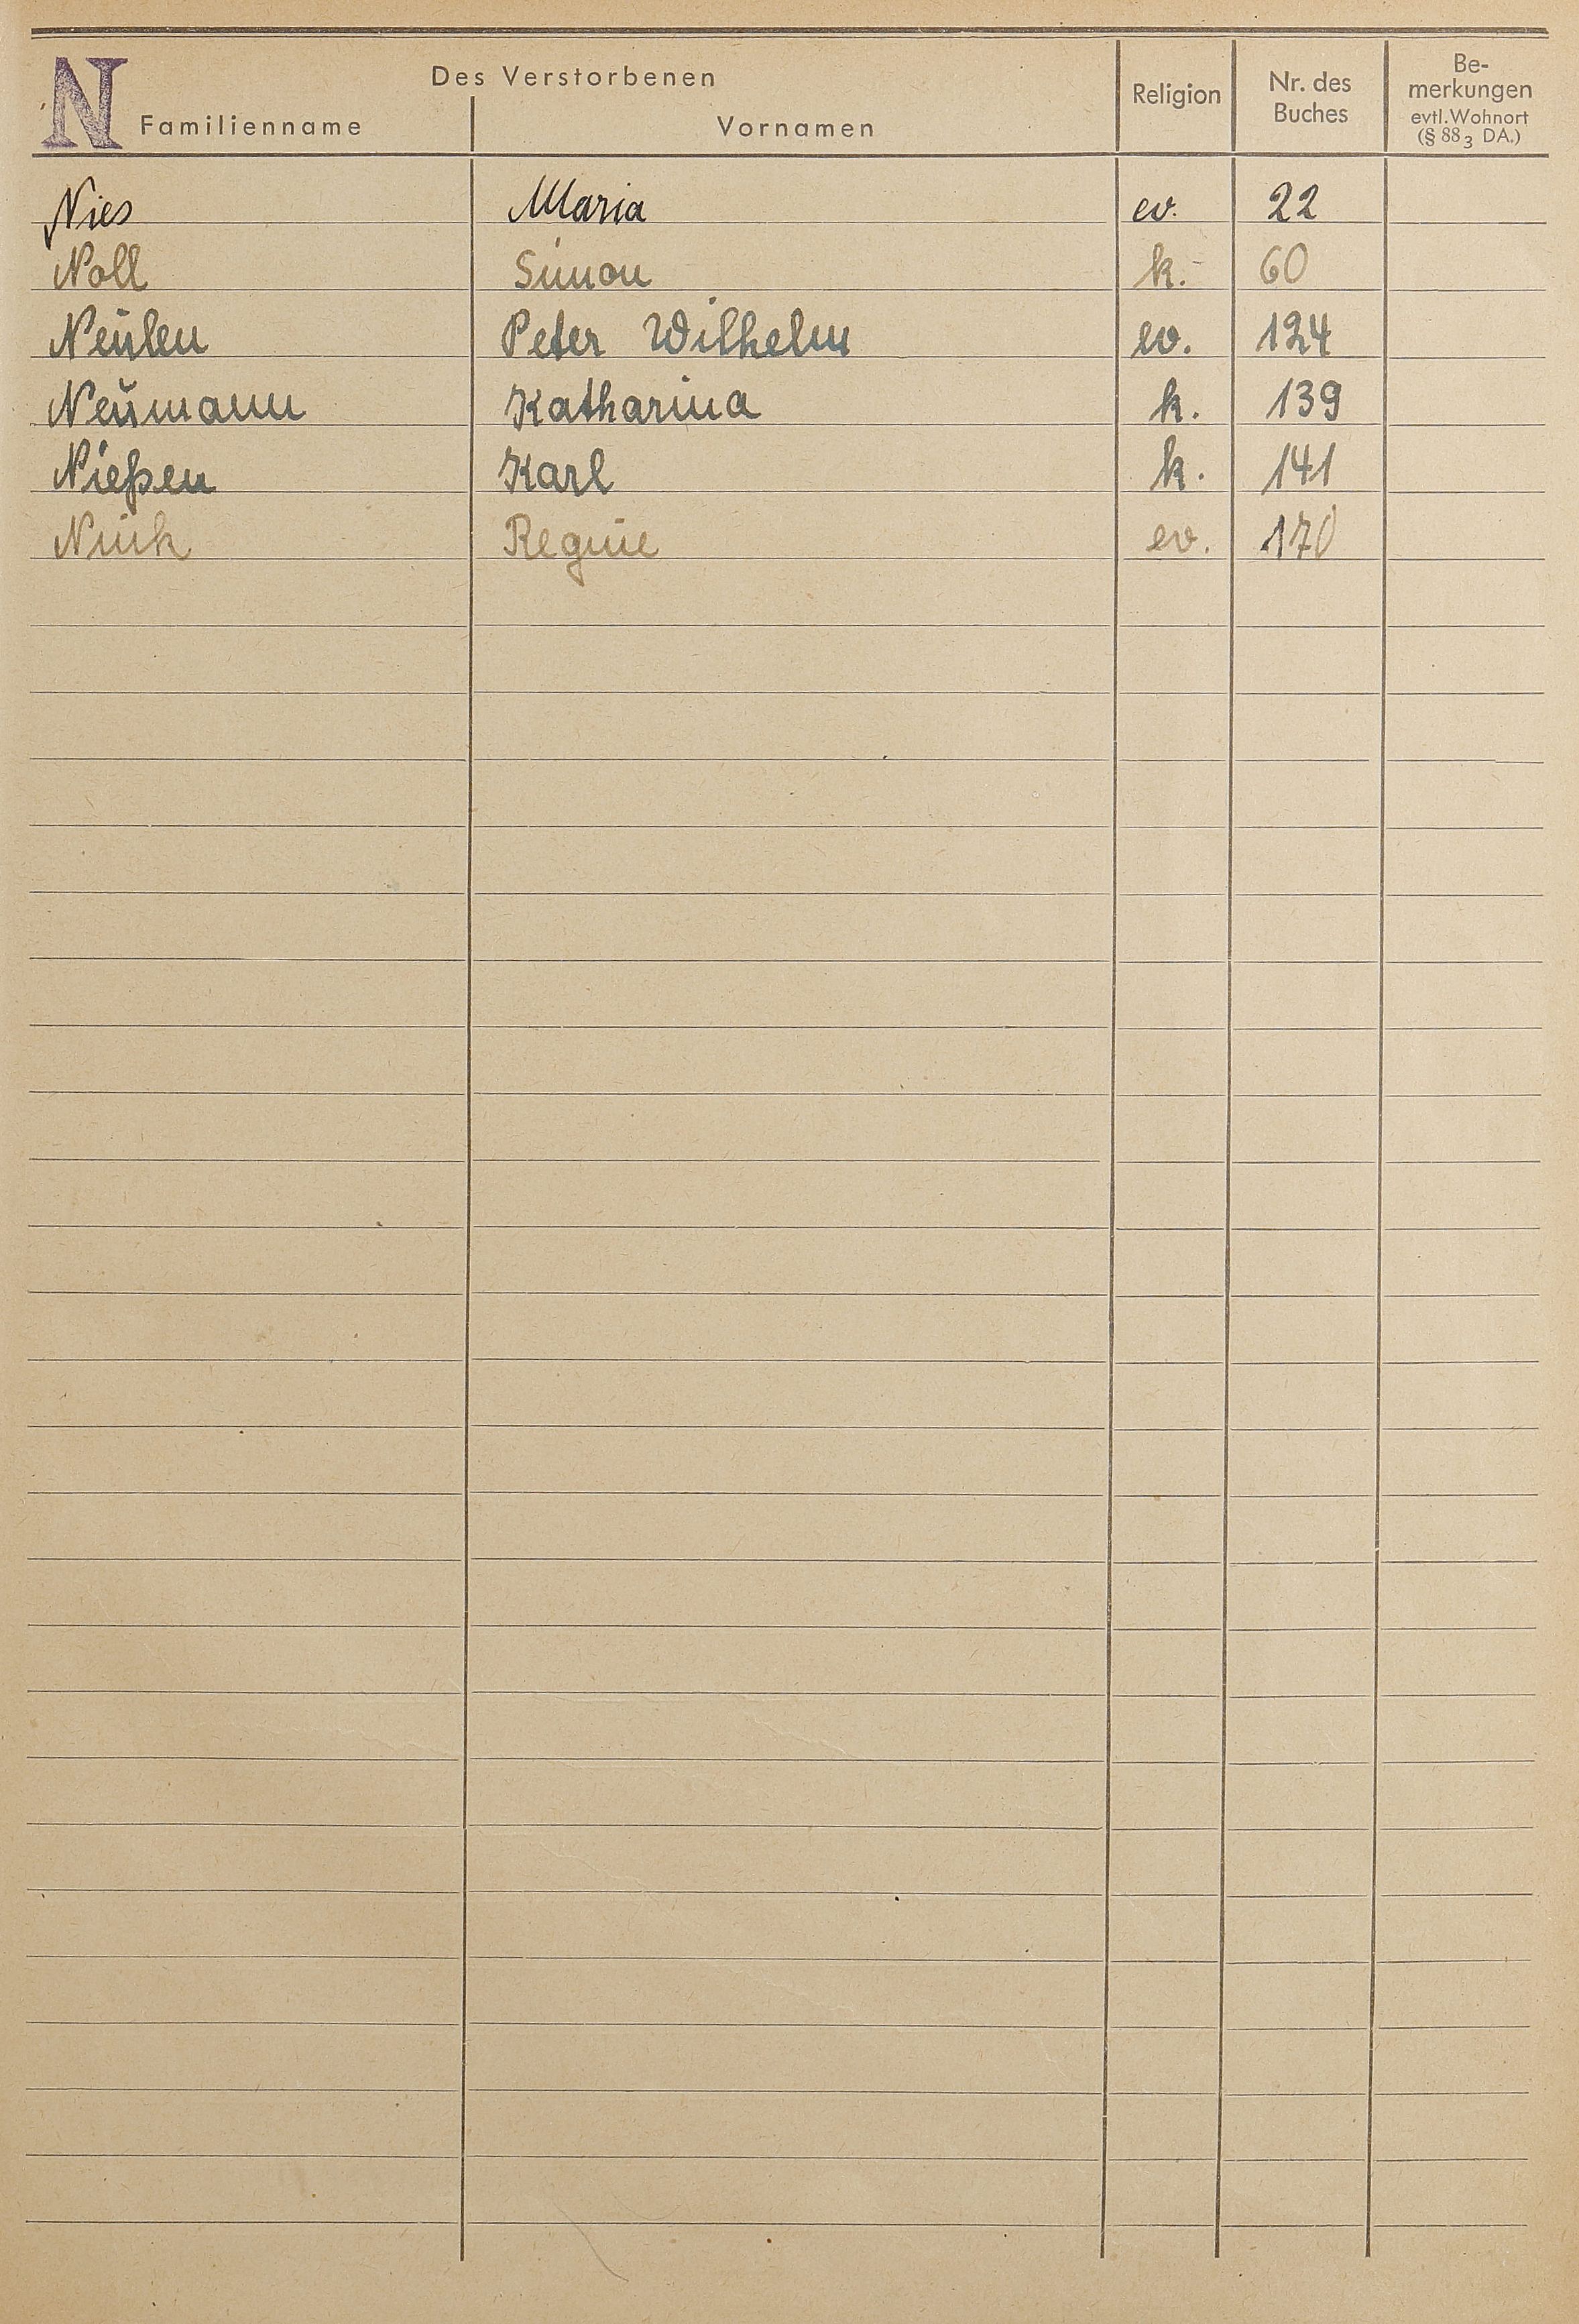 N
Des Verstorbenen
Familienname Vornamen Religion Nr. des Buches Be-merkungen evtl.Wohnort (§ 88 3 DA.)
Nies Maria ev. 22
Noll Simon k. 60
Neulen Peter Wilhelm ev. 124
Neumann Katharina k. 139
Nießen Karl k. 141
ev. 170